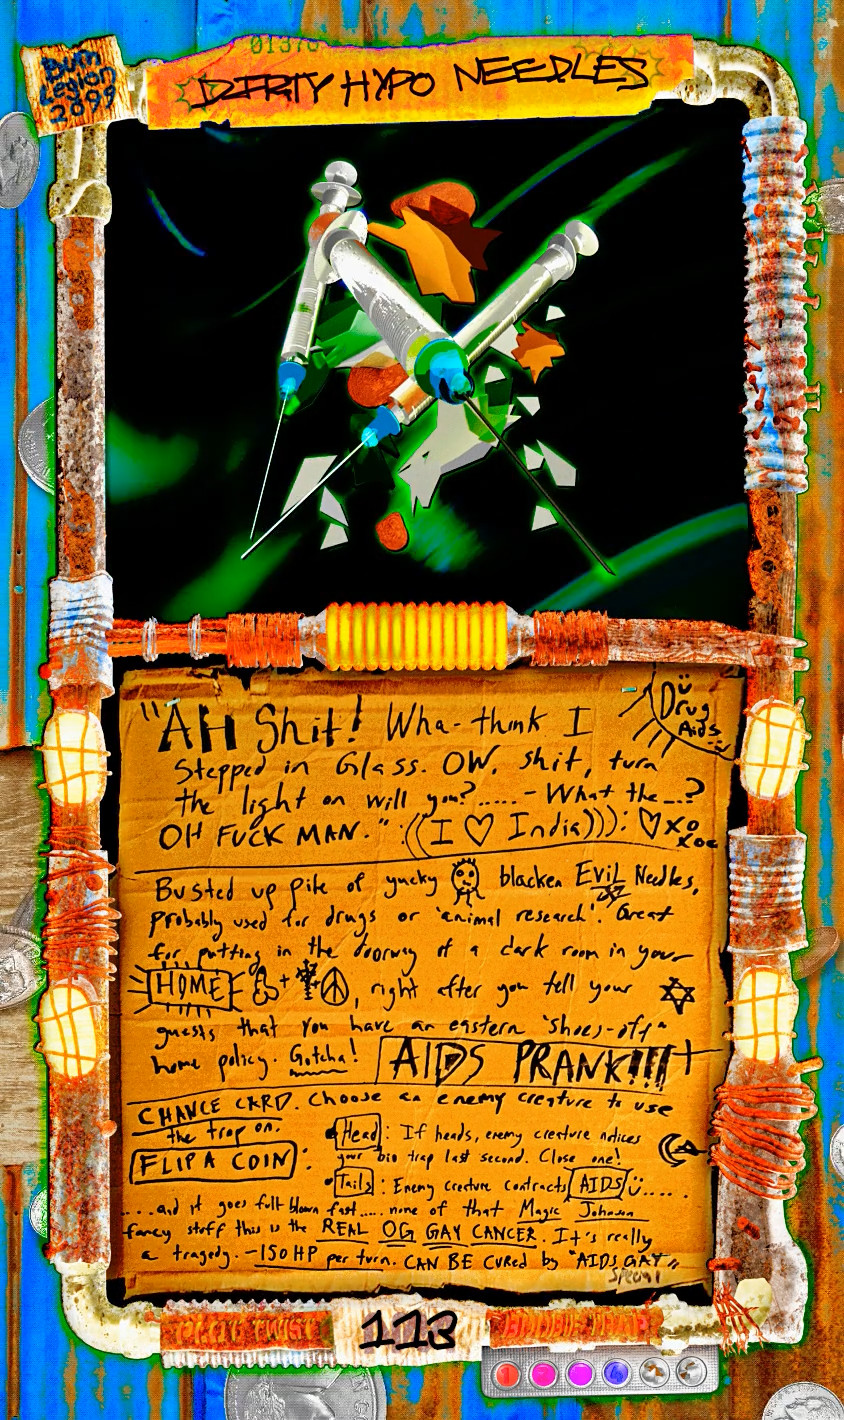 01370
Bum
Legion
2099
DIRTY HYPO NEEDLES
Drug
Aids
"AH Shit! Wha- think I
Stepped in Glass. OW. shit, turn
the light on will you?..... - What the _..?
OH FUCK MAN." :((I ♡ India))): ♡xo
xoc
Busted up pile of yucky blacken EviL Needles,
probably used for drugs or 'animal research'. Great
for putting in the doorway of a dark room in your
HOME + ☮, right after you tell your ✡
guests that you have an eastern "shoes-off"
home policy. Gotcha! AIDS PRANK!!!
CHANCE CARD. Choose an enemy creature to use
the trap on.
FLIP A COIN :
• Head : If heads, enemy creature notices
your bio trap last second. Close one!
• Tails : Enemy creature contracts AIDS ü.....
....and it goes full blown fast..... none of that Magic Johnson
fancy stuff this is the REAL OG GAY CANCER. It's really
a tragedy. -150HP per turn. CAN BE CURED by "AIDS GAY"
Special
PLOT TWIST
113
1
4